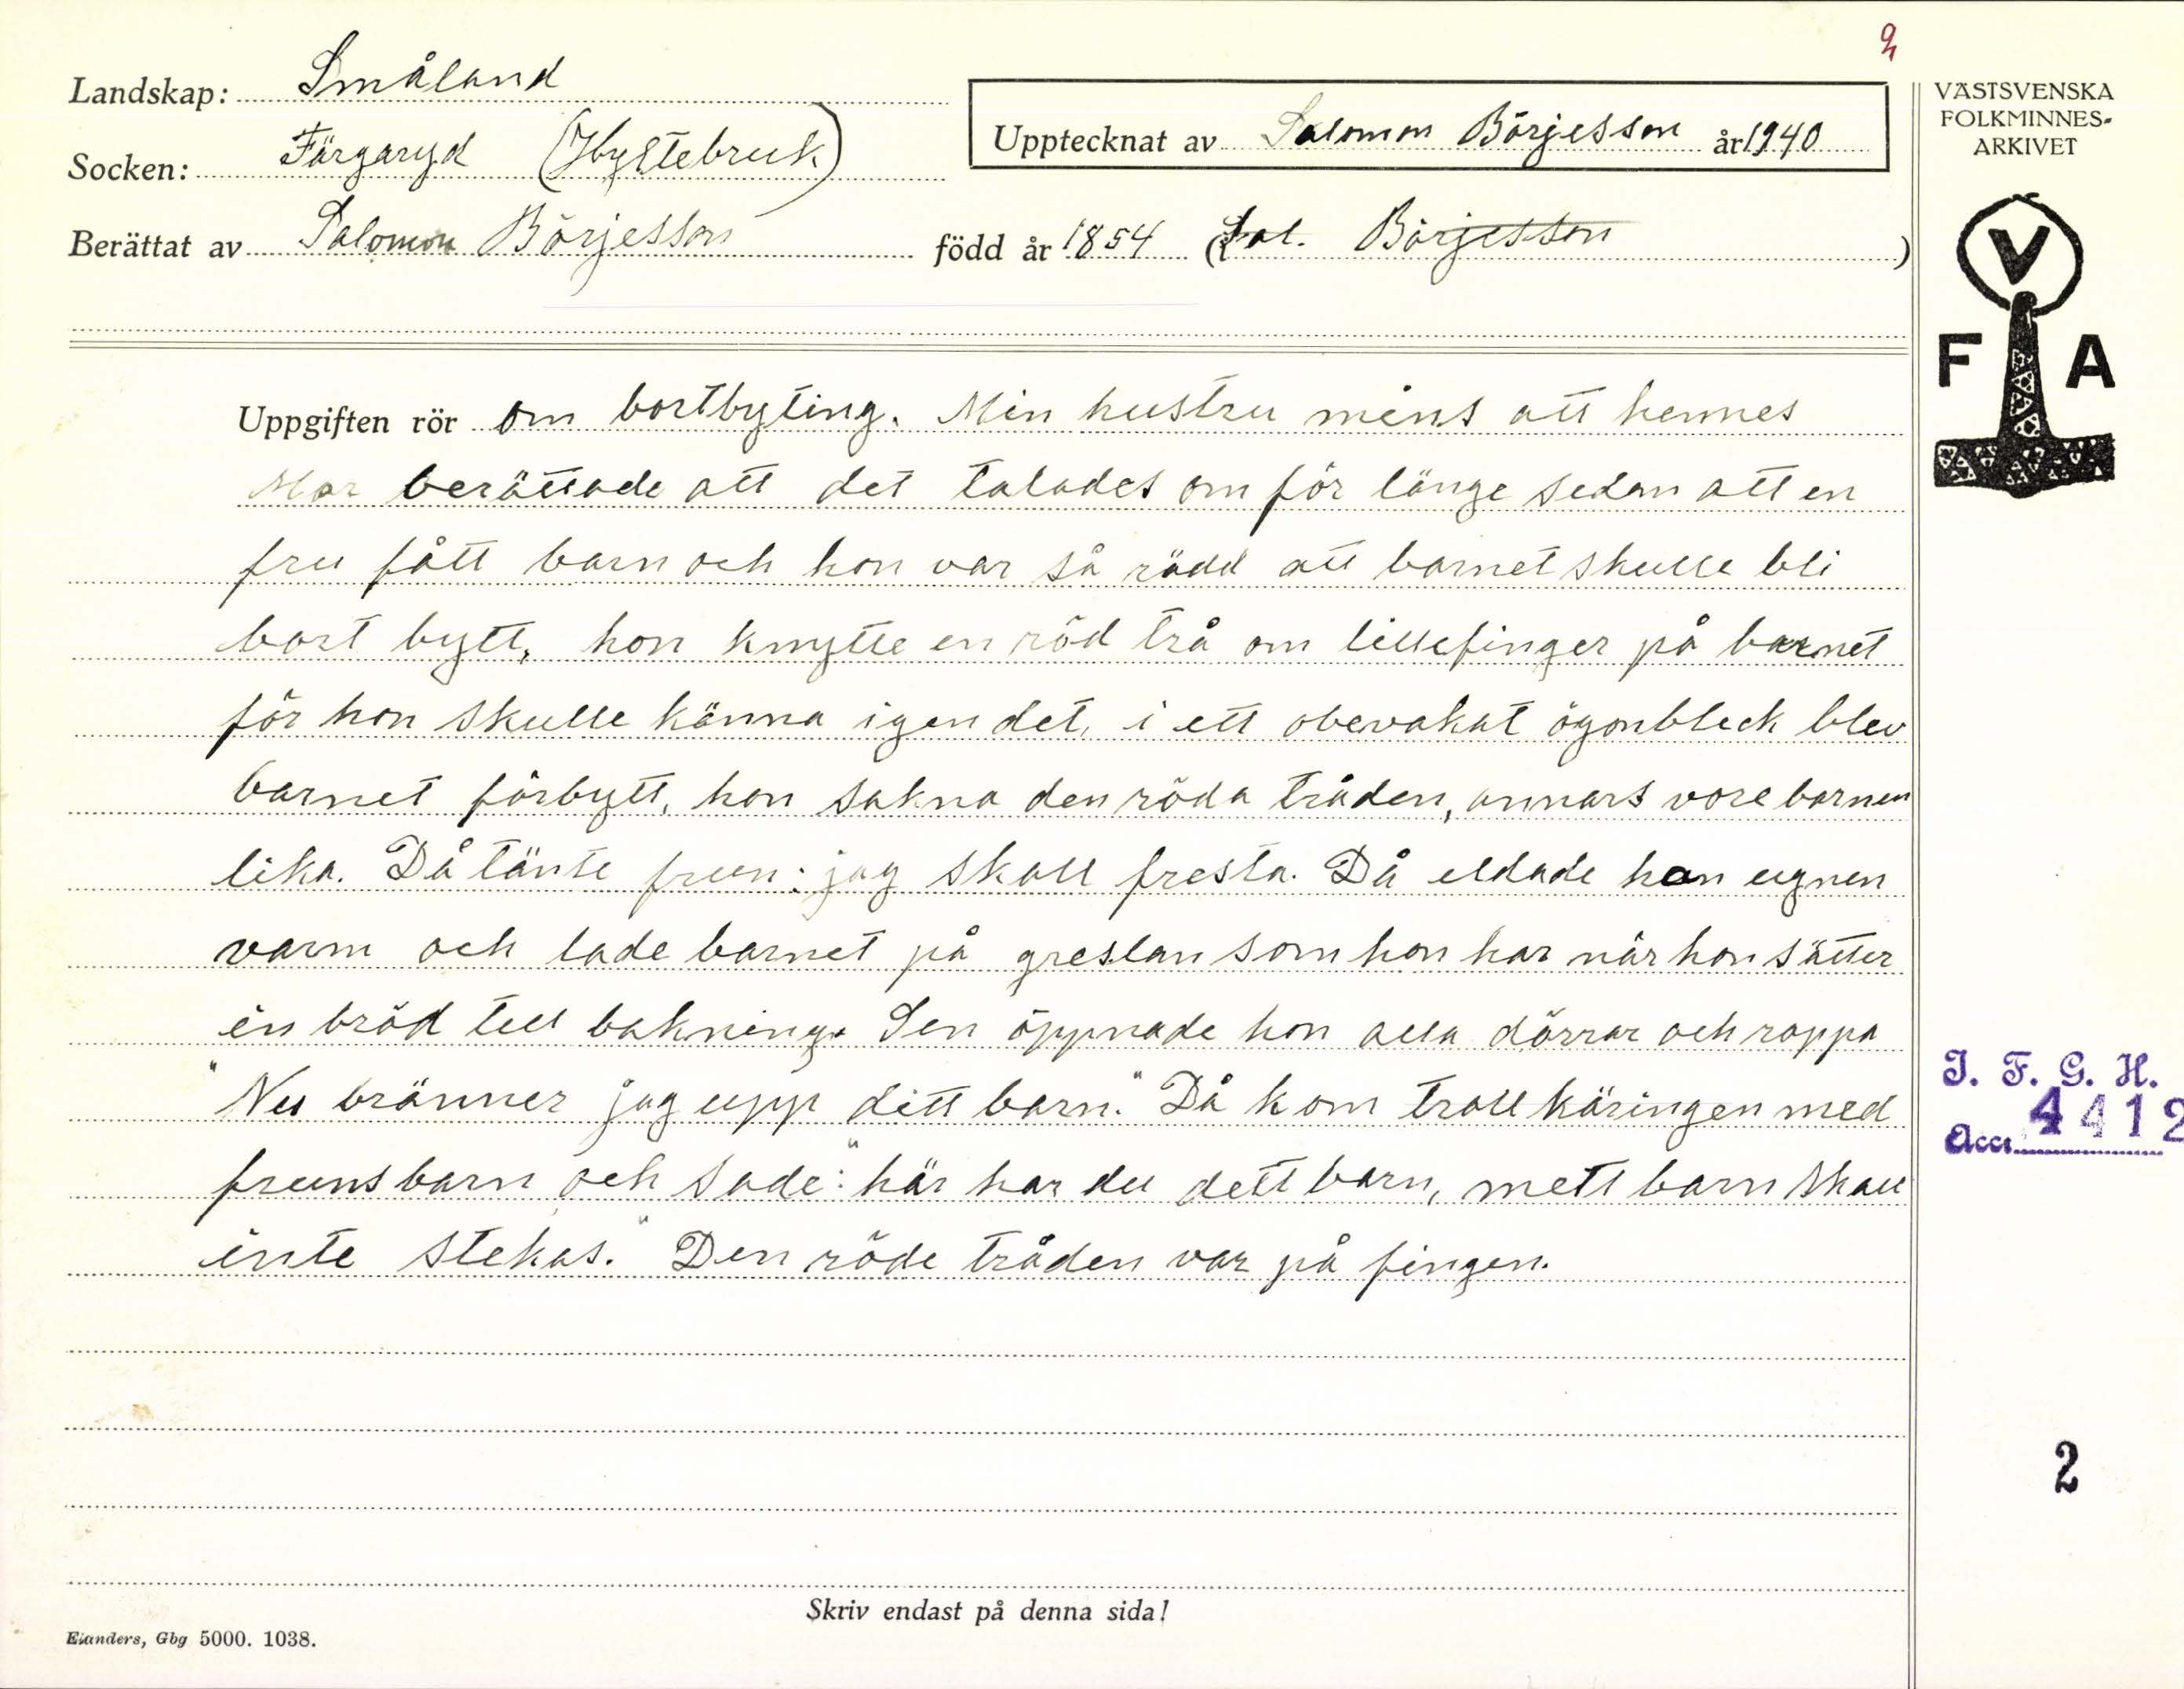 2
Landskap: Småland
Socken: Färgaryd (Hyltebruk)
Upptecknat av Salomon Börjesson år 1940
Berättat av Salomon Börjesson född år 1854 (Sal. Börjesson)
VÄSTSVENSKA
FOLKMINNES-
ARKIVET
V
F A
Uppgiften rör om bortbyting. Min hustru mins att hennes
Mor berättade att det talades om för länge sedan att en
fru fått barn och hon var så rädd att barnet skulle bli
bort bytt, hon knytte en röd trå om lillefinger på barnet
för hon skulle känna igen det, i ett obevakat ögonbleck blev
barnet förbytt, hon sakna den röda tråden, annars vore barnen
lika. Då tänte fruen: jag skall fresta. Då eldade hon ugnen
varm och lade barnet på greslan som hon har när hon sätter
in bröd till bakning. Sen öppnade hon alla dörrar och roppa
"Nu bränner jag upp ditt barn." Då kom trollkäringen med
fruns barn och sade: "här har du dett barn, mett barn skall
inte stekas." Den röde tråden var på fingen.
I. F. G. H.
Acc. 4412
2
Skriv endast på denna sida!
Elanders, Gbg 5000. 1038.